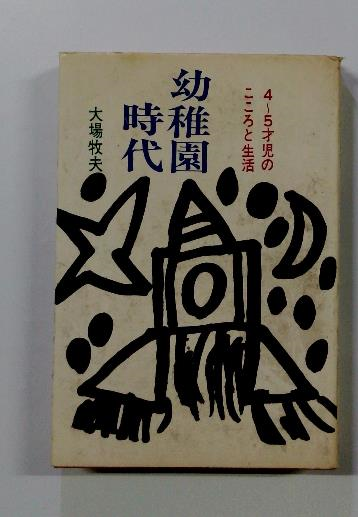 4〜5才児の
こころと生活
幼稚園
時代
大場牧夫